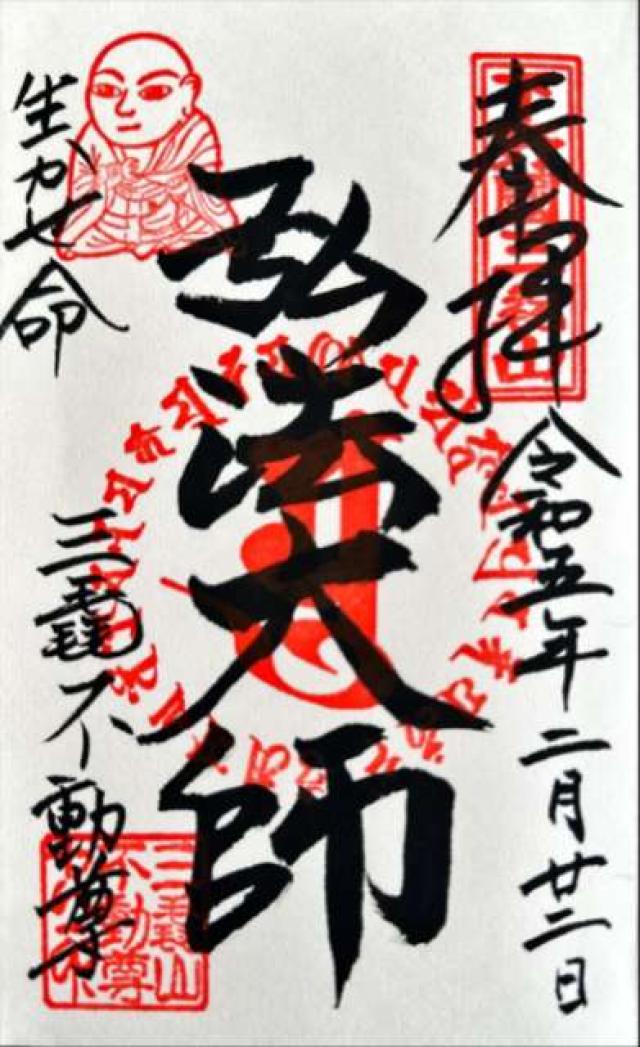 奉拝
令和五年二月廿二日
弘法大師
生かせ命
三毳不動尊
三毳山
不動尊